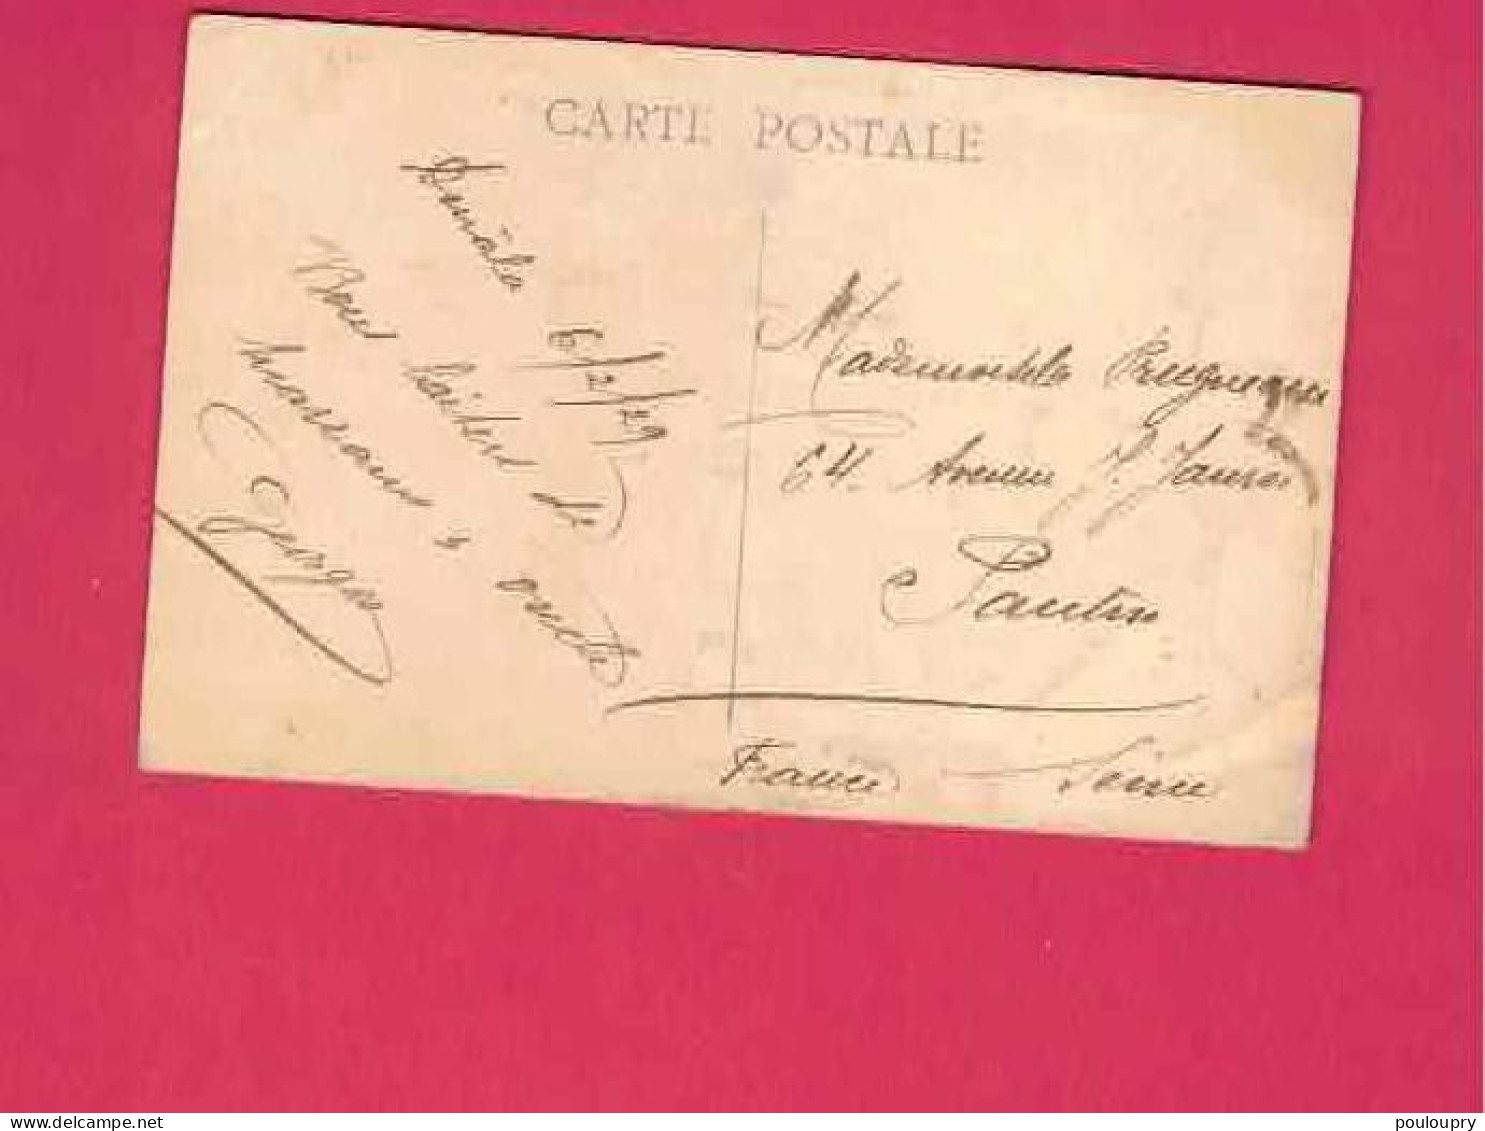 CARTE POSTALE
6/2/29
Bons baisers de
Georges
Mademoiselle
64. Avenue J. Jaurès
Pantin
France Seine
pouloupry